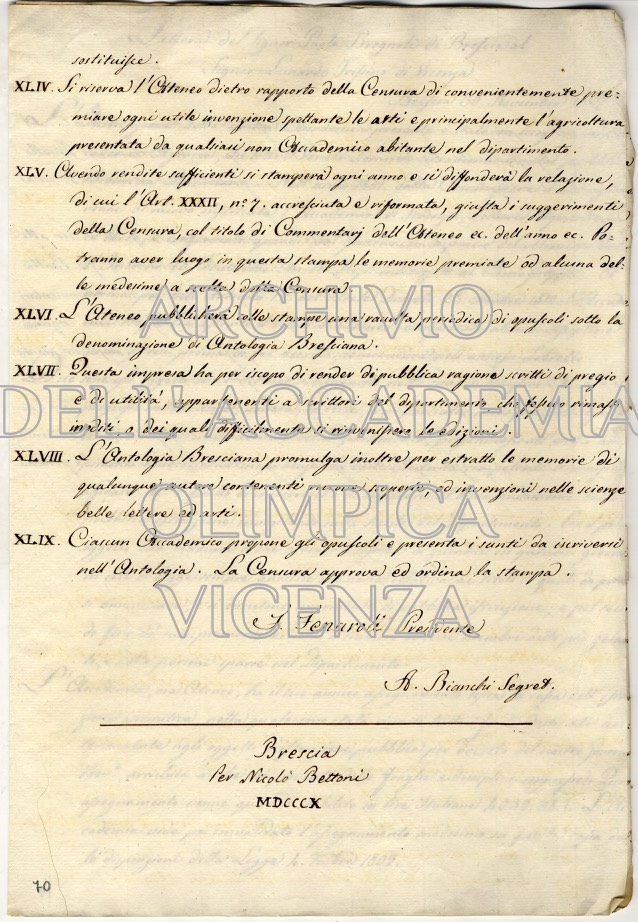 sostituisce.
XLIV. Si riserva l'Ateneo dietro rapporto della Censura di convenientemente pre=
miare ogni utile invenzione spettante le arti e principalmente l'agricoltura
presentata da qualsiasi non Accademico abitante nel dipartimento.
XLV. Avendo rendite sufficienti si stamperà ogni anno e si diffonderà la relazione,
di cui l'Art. XXXII, nº 7. accresciuta e riformata, giusta i suggerimenti
della Censura, col titolo di Commentarj dell'Ateneo ec. dell'anno ec. Po=
tranno aver luogo in questa stampa le memorie premiate od alcuna del=
le medesime a scelta della Censura
XLVI. L'Ateneo pubblicherà colle stampe una raccolta periodica di opuscoli sotto la
denominazione di Antologia Bresciana.
XLVII. Questa impresa ha per iscopo di render di pubblica ragione scritti di pregio
e di utilità, appartenenti a scrittori del dipartimento che fossero rimasti
inediti, o dei quali difficilmente si rinvenissero le edizioni.
XLVIII. L'Antologia Bresciana promulga inoltre per estratto le memorie di
qualunque autore contenenti nuove scoperte, ed invenzioni nelle scienze
belle lettere ed arti.
XLIX. Ciascun Accademico propone gli opuscoli e presenta i sunti da iscriversi
nell'Antologia. La Censura approva ed ordina la stampa.
Fenaroli Presidente
A. Bianchi Segret.
Brescia
Per Nicolò Bettoni
MDCCCX
70
ARCHIVIO
DELL'ACCADEMIA
OLIMPICA
VICENZA